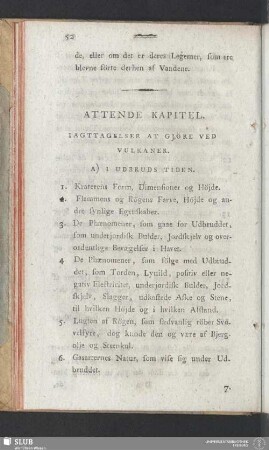 52
de, eller om det er deres Legemer, som ere
blevne førte derhen af Vandene.
ATTENDE KAPITEL.
IAGTTAGELSER AT GIØRE VED
VULKANER.
A) I UDBRUDS TIDEN.
1. Kraterens Form, Dimensioner og Höjde.
2. Flammens og Rögens Farve, Höjde og an-
dre synlige Egenskaber.
3. De Phænomener, som gaae for Udbruddet,
som underjordisk Bulder, Jordskjelv og over-
ordentlige Bevægelser i Havet.
4 De Phænomener, som fölge med Udbrud-
det, som Torden, Lynild, positiv eller ne-
gativ Electricitet, underjordisk Bulder, Jord-
skjelv, Slagger, udkastede Aske og Stene,
til hvilken Höjde og i hvilken Afstand.
5. Lugten af Rögen, som sædvanlig röber Svö-
velsyre, dog kunde den og være af Bjerg-
olje og Steenkul.
6. Gasarternes Natur, som vise sig under Ud-
bruddet.
7.
SLUB